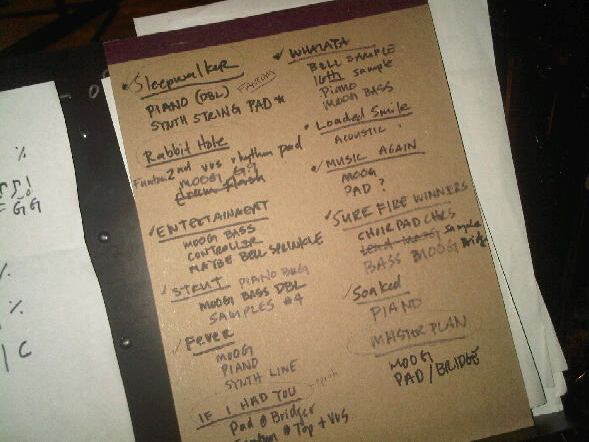 Sleepwalker
PIANO (DBL) FANTOM
SYNTH STRING PAD *
Rabbit Hole
2nd vvs rhythm pad
MOOG
ENTERTAINMENT
MOOG BASS
CONTROLLER
MAYBE BELL SPRINKLE
STRUT PIANO
MOOG BASS DBL
SAMPLES #4
FEVER
MOOG
PIANO
SYNTH LINE
IF I HAD YOU
Pad @ Bridge
@ Top + VVS
WHATAYA
BELL SAMPLE
16th sample
PIANO
MOOG BASS
Loaded Smile
ACOUSTIC
MUSIC AGAIN
MOOG
PAD?
SURE FIRE WINNERS
CHOIR PAD CHRS
Lead Moog Sample
BASS MOOG Bridge
Soaked
PIANO
MASTER PLAN
MOOG
PAD/BRIDGE
%
GG
%
%
| C